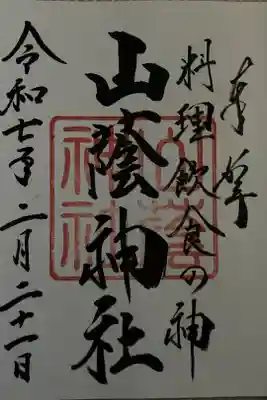 奉拝
料理飲食の神
山蔭神社
令和七年二月二十一日